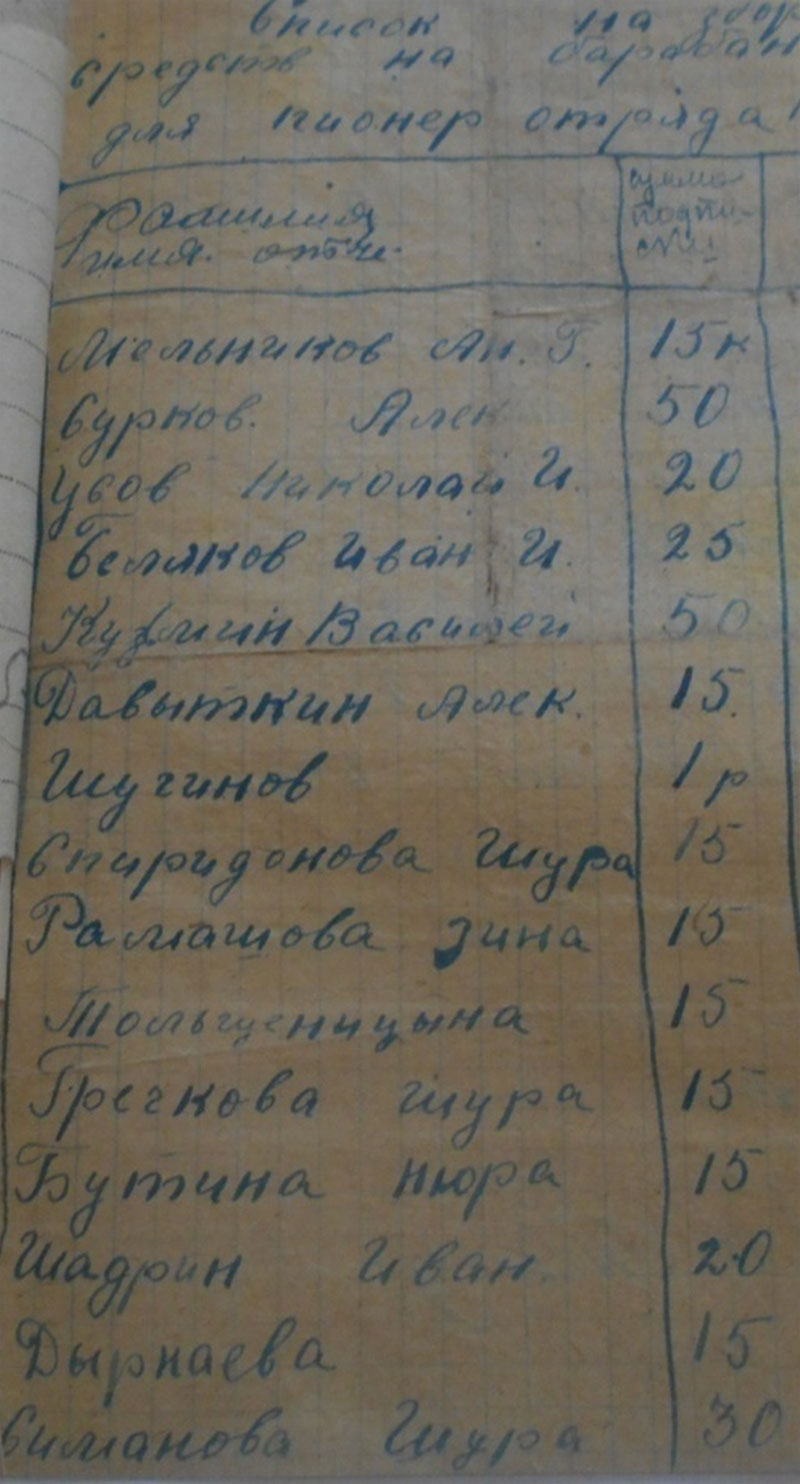 Список на збор
средств на барабан
для пионер отряда
Фамилия сумма
имя. отче. подпи-
ски
Мельников Ал. Г. 15к
Сурков. Алек 50
Усов Николай И. 20
Беляков Иван И. 25
Кузмин Василей 50
Давыткин Алек. 15.
Шучинов 1р
Спиридонова Шура 15
Рамашова Зина 15
Тольщеницына 15
Гречкова Шура 15
Бутина Нюра 15
Шадрин Иван. 20
Дырнаева 15
Симанова Шура 30